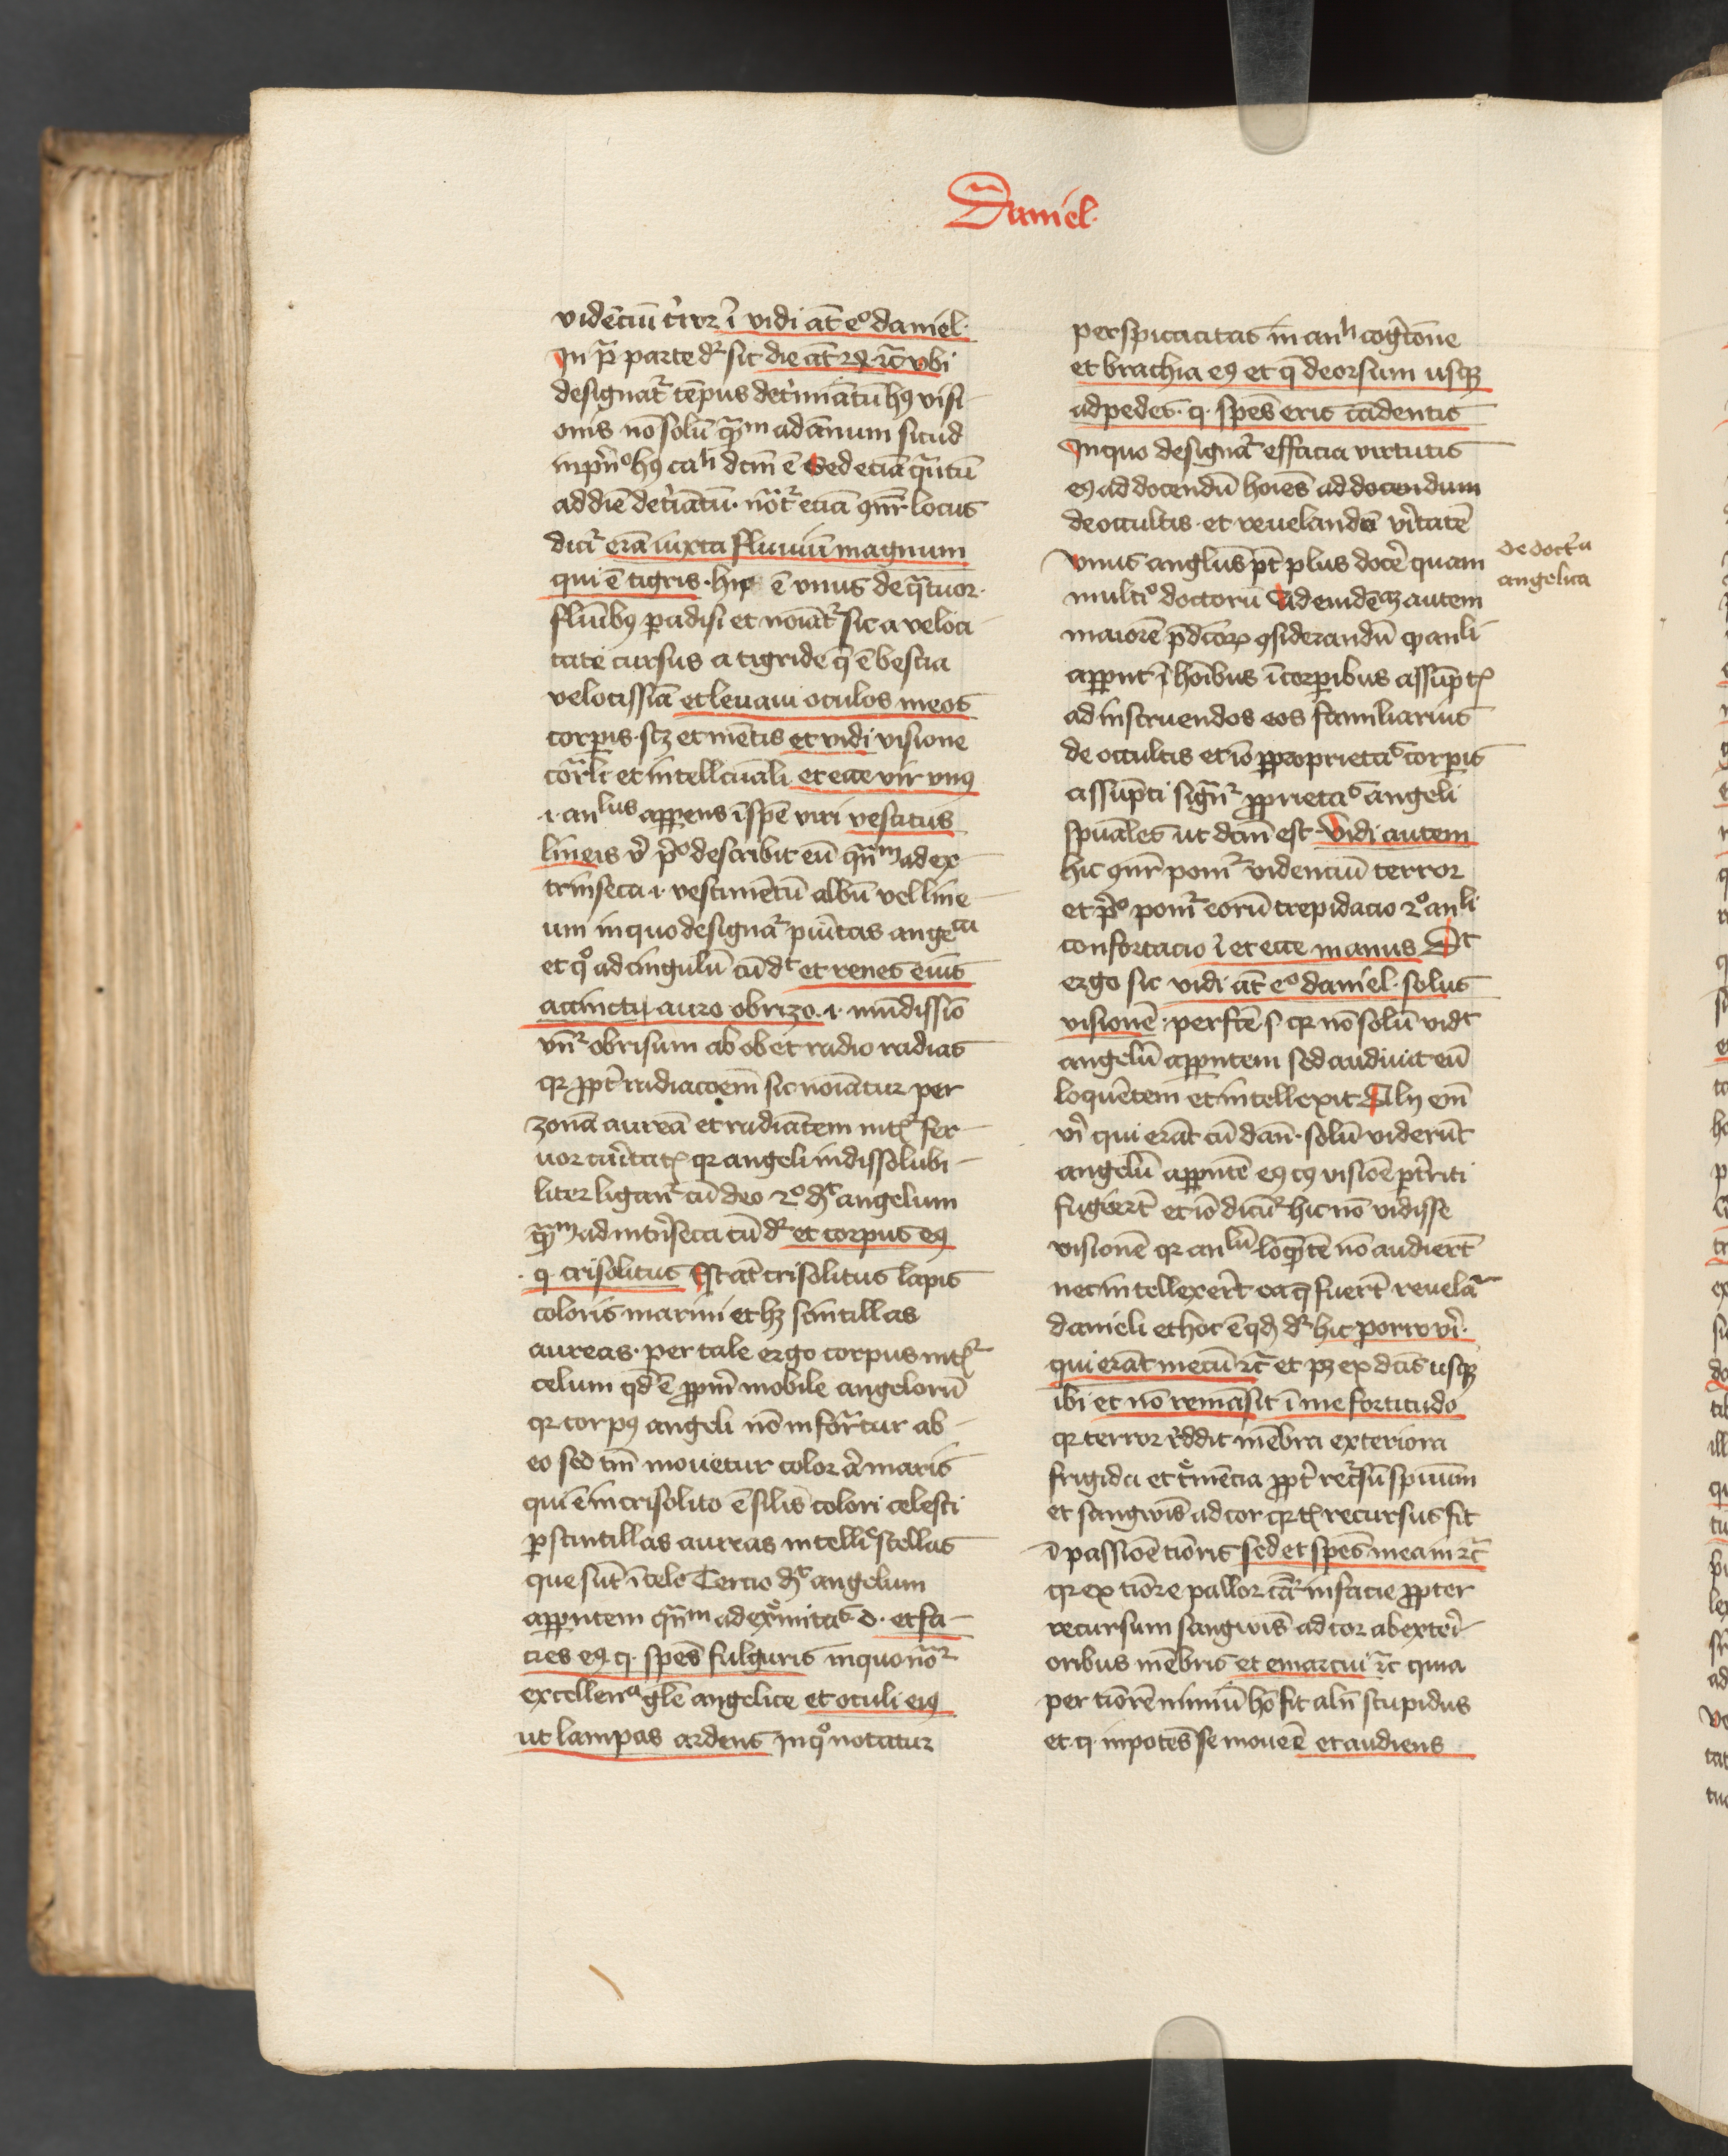 Daniel.
vidēciū t'ror ī vidi āt e° daniel.
In p̄ parte dr sic die āt xx rc̄ vbi
designat' tēpus det'miātū hꝰ visi-
onis nō solū q̄m ad annum sicud
in pn° hꝰ cali dcm ē Sed eciā q̄ntū
ad diē det'iātū. nōt' eciā ꝯnr locus
dicit' erā iuxta fluuiū magnum
qui ē tigris. hic ē vnus de q̄tuor.
fluibꝰ padisi et noiāt' sic a veloci-
tate cursus a tigride q̄ ē bestia
velocissiā et leuaui oculos meos
corpis. scz et mētis et vidi visione
corali et intellcuali et ecce vir vnꝰ
.i. anlus apparens ī spē viri vestitus
lineis v' p° describit eū qn̄m ad ex-
trinseca .i. vestimētū albū vel line-
um in quo designat' puritas angeca
et q° ad cingulū cū dt et renes eius
accincti auro obrizo. i. mūdissio
vn̄ obrisum ab ob et radio radias
qr ppt' radiacoem sic noiantur per
zonā aureā et radiātem int' fer-
uor caritatꝭ qr angeli indissolubi-
liter ligant' cū deo 2° dt angelum
q̄m ad int'seca cū dr et corpus eꝰ
.q. crisolitus Est āt crisolitus lapis
coloris marini et hz scintillas
aureas. per tale ergo corpus int'
celum qd ē ppm mobile angelorū
qr corpꝰ angeli nō infor'tur ab
eo sed tm̄ mouetur color .n. maris
qui ē in crisolito ē silis colori celesti
p scintillas aureas intelli' stellas
que sūt ī celo Tercio dt angelum
apparentem qn̄m ad ext'mitas .d. et fa-
cies eꝰ q. spēs fulguris in quo not'
excellena glē angelice et oculi eiꝰ
ut lampas ardens In q° notatur
perspicacitas in anli cogcōne
et brachia eꝰ et q̄ deorsum usqꝫ
ad pedes. q. spēs eris cādentis
In quo designat' efficacia virtutis
eꝰ ad docendū hoies ad docendum
de occultis. et reuelandā v'itatē
vnus anglus pt plus docē quam
multi° doctorū Ad euidēcꝫ autem
maiorē pdcorꝫ ꝯsiderandū qꝫ anli
apparent ī hoibus ī corpibus assūptꝭ
ad instruendos eos familiarius
de occultis et iō p proprietas corpis
assūpti signt' pprietas angeli
spuales ut dcm est. Vidi autem
hic ꝯnr ponit' videnciū terror
et p° ponit' eorū trepidacio 2° anli
confortacio ī et ecce manus Dt
ergo sic vidi āt e° daniel. solus
visionē. perfcē s qr nō solū vidt
angelū apparentem sed audiuit eū
loquētem et intellexit Alij em̄
vi' qui erāt cū dan. solū viderūt
angelū apparentē eꝰ cꝰ visiōe pt'riti
fugiert' et iō dicūt' hic nō vidisse
visionē qr anlū loq̄tē nō audiert'
nec intellexert' ea q̄ fuert' reuelat'
danieli et hoc ē qd dr hic porro vi'.
qui erāt mecū rc̄ et pz ex dcis usqꝫ
ibi et nō remāsit ī me fortitudo
qr terror reddit mēbra exteriora
frigida et t'mēcia ppt' rec'sū spiuum
et sangwis ad cor qr tꝭ recursus fit
ī passiōe tiōris sed et spēs mea in rc̄
qr ex tiōre pallor cāt' in facie ppter
recursum sangwis ad cor ab exteri-
oribus mēbris et emarcui rc̄ quia
per tiōrē nimiū hō fit aln̄ stupidus
et q. inpotēs se mouē et audiens
de doct'a
angelica